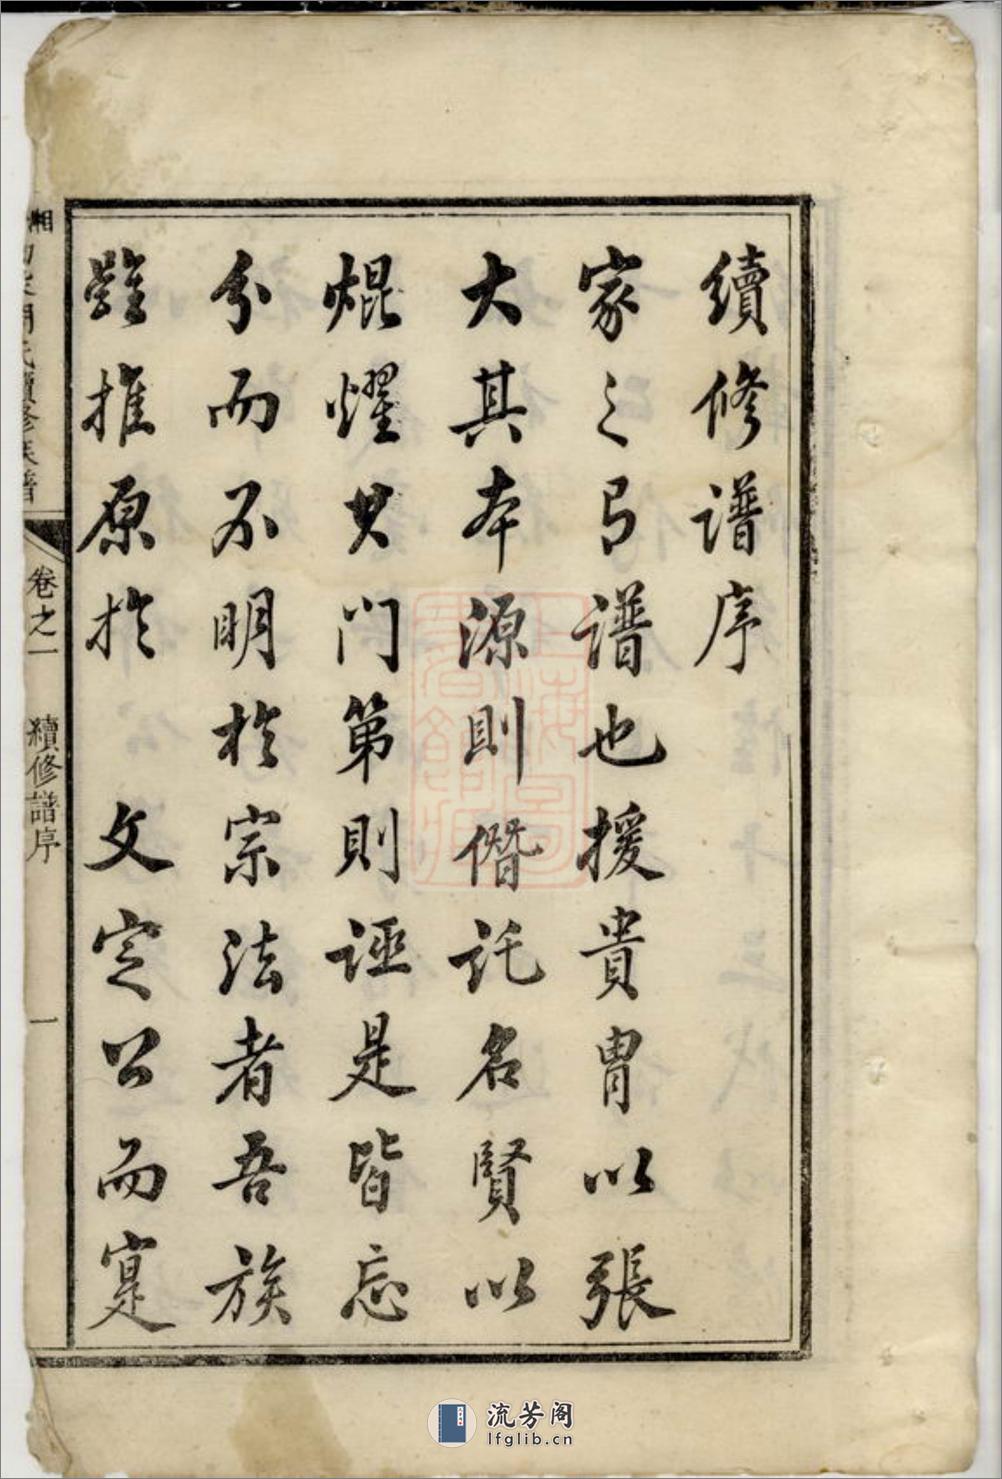 續修譜序
家之弓譜也援貴胄以張
大其本源則僭託名賢以
焜燿其門第則誣是皆忘
分而不明於宗法者吾族
雖推原於 文定公而寔
卷之一 續修譜序 一
流芳阁
lfglib.cn